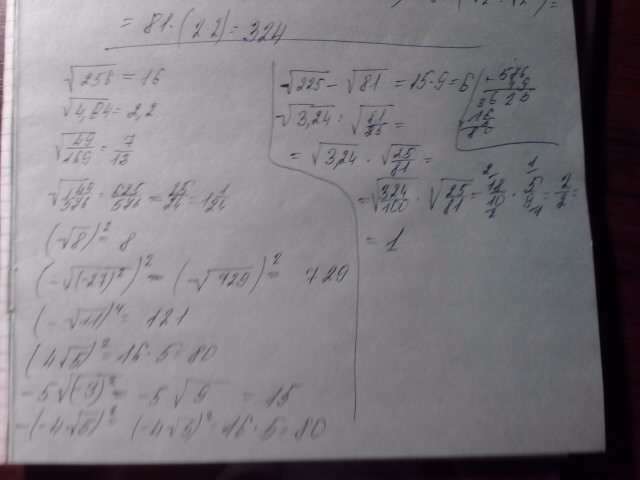 = 81·(2·2) = 324
√256 = 16
√4,84 = 2,2
√49/169 = 7/13
√1 49/576 = 625/576 = 25/24 = 1 1/24
(√8)² = 8
(-√(-27)²)² = (-√729)² = 729
(-√11)⁴ = 121
(4√5)² = 16·5=80
-5√(-3)² = -5√9 = 15
-(-4√5)² = (-4√5)² = 16·5=80
√225 - √81 = 15-9=6
√3,24 : √81/25 =
= √3,24 · √25/81 =
= √324/100 · √25/81 = 18/10 · 5/9 = 2/2 =
= 1